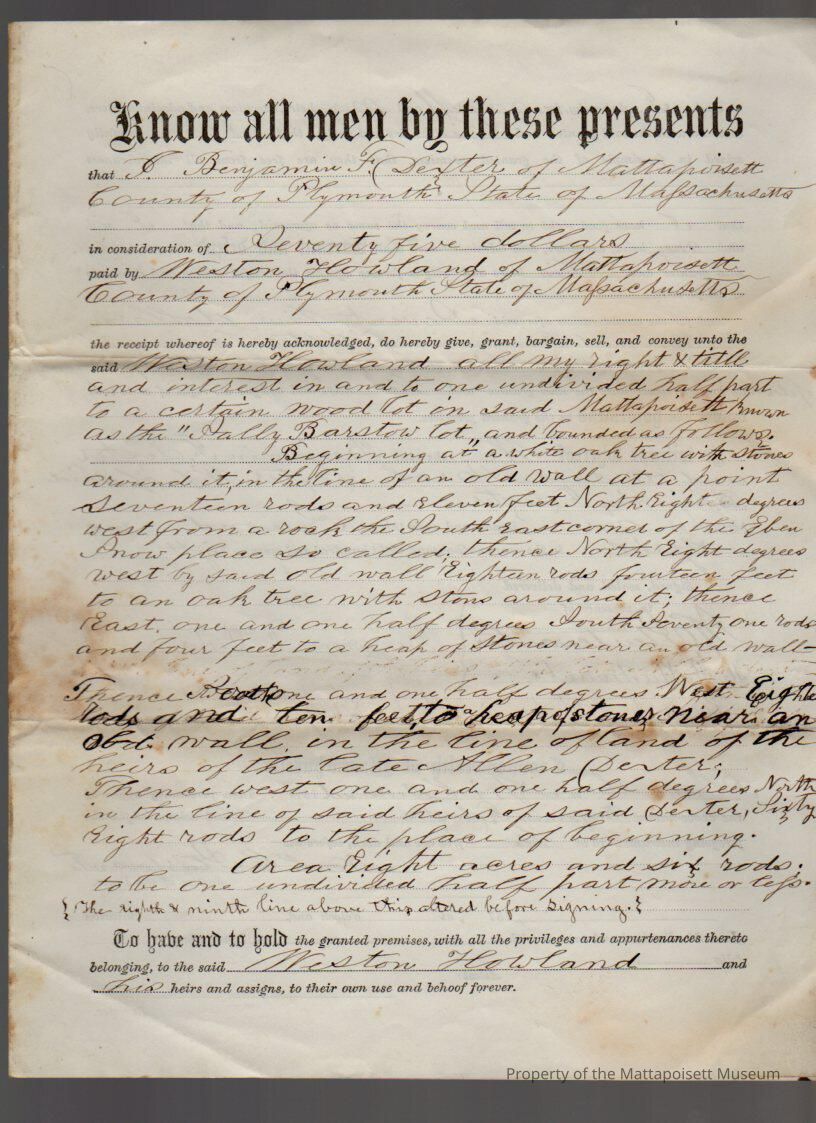 Know all men by these presents
that I Benjamin F. Dexter of Mattapoisett
County of Plymouth State of Massachusetts
in consideration of Seventy five dollars
paid by Weston Howland of Mattapoisett
County of Plymouth State of Massachusetts
the receipt whereof is hereby acknowledged, do hereby give, grant, bargain, sell, and convey unto the
said Weston Howland all my right & title
and interest in and to one undivided half part
to a certain wood lot in said Mattapoisett known
as the "Sally Barstow lot" and bounded as follows.
Beginning at a white oak tree with stones
around it, in the line of an old wall at a point
Seventeen rods and Eleven feet North Eight degrees
west from a rock the South East corner of the Eben
Snow place so called; thence North Eight degrees
west by said old wall Eighteen rods fourteen feet
to an oak tree with stons around it; thence
East. one and one half degrees South Seventy one rods
and four feet to a heap of Stones near an old wall—
Thence South one and one half degrees West Eight
rods and ten feet to a heap of stones near an
old wall, in the line of land of the
heirs of the late Allen Dexter;
Thence west one and one half degrees North
in the line of said heirs of said Dexter, Sixty
Eight rods to the place of beginning.
Area Eight acres and six rods.
to be one undivided half part more or less.
{The eighth & ninth line above this altered before signing.}
To have and to hold the granted premises, with all the privileges and appurtenances thereto
belonging, to the said Weston Howland and
his heirs and assigns, to their own use and behoof forever.
Property of the Mattapoisett Museum